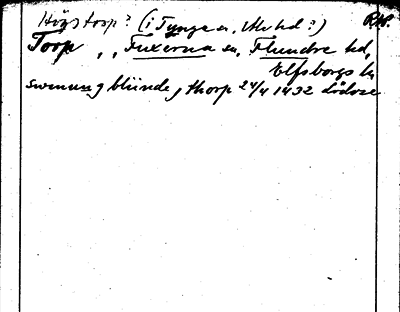 Högstorp? (i Tynge sn, Ale hd?) RAP.
Torp, , Fuxerna sn, Flundre hd,
Elfsborgs l.
swenung blinde j thorp 24/4 1492 Lödöse